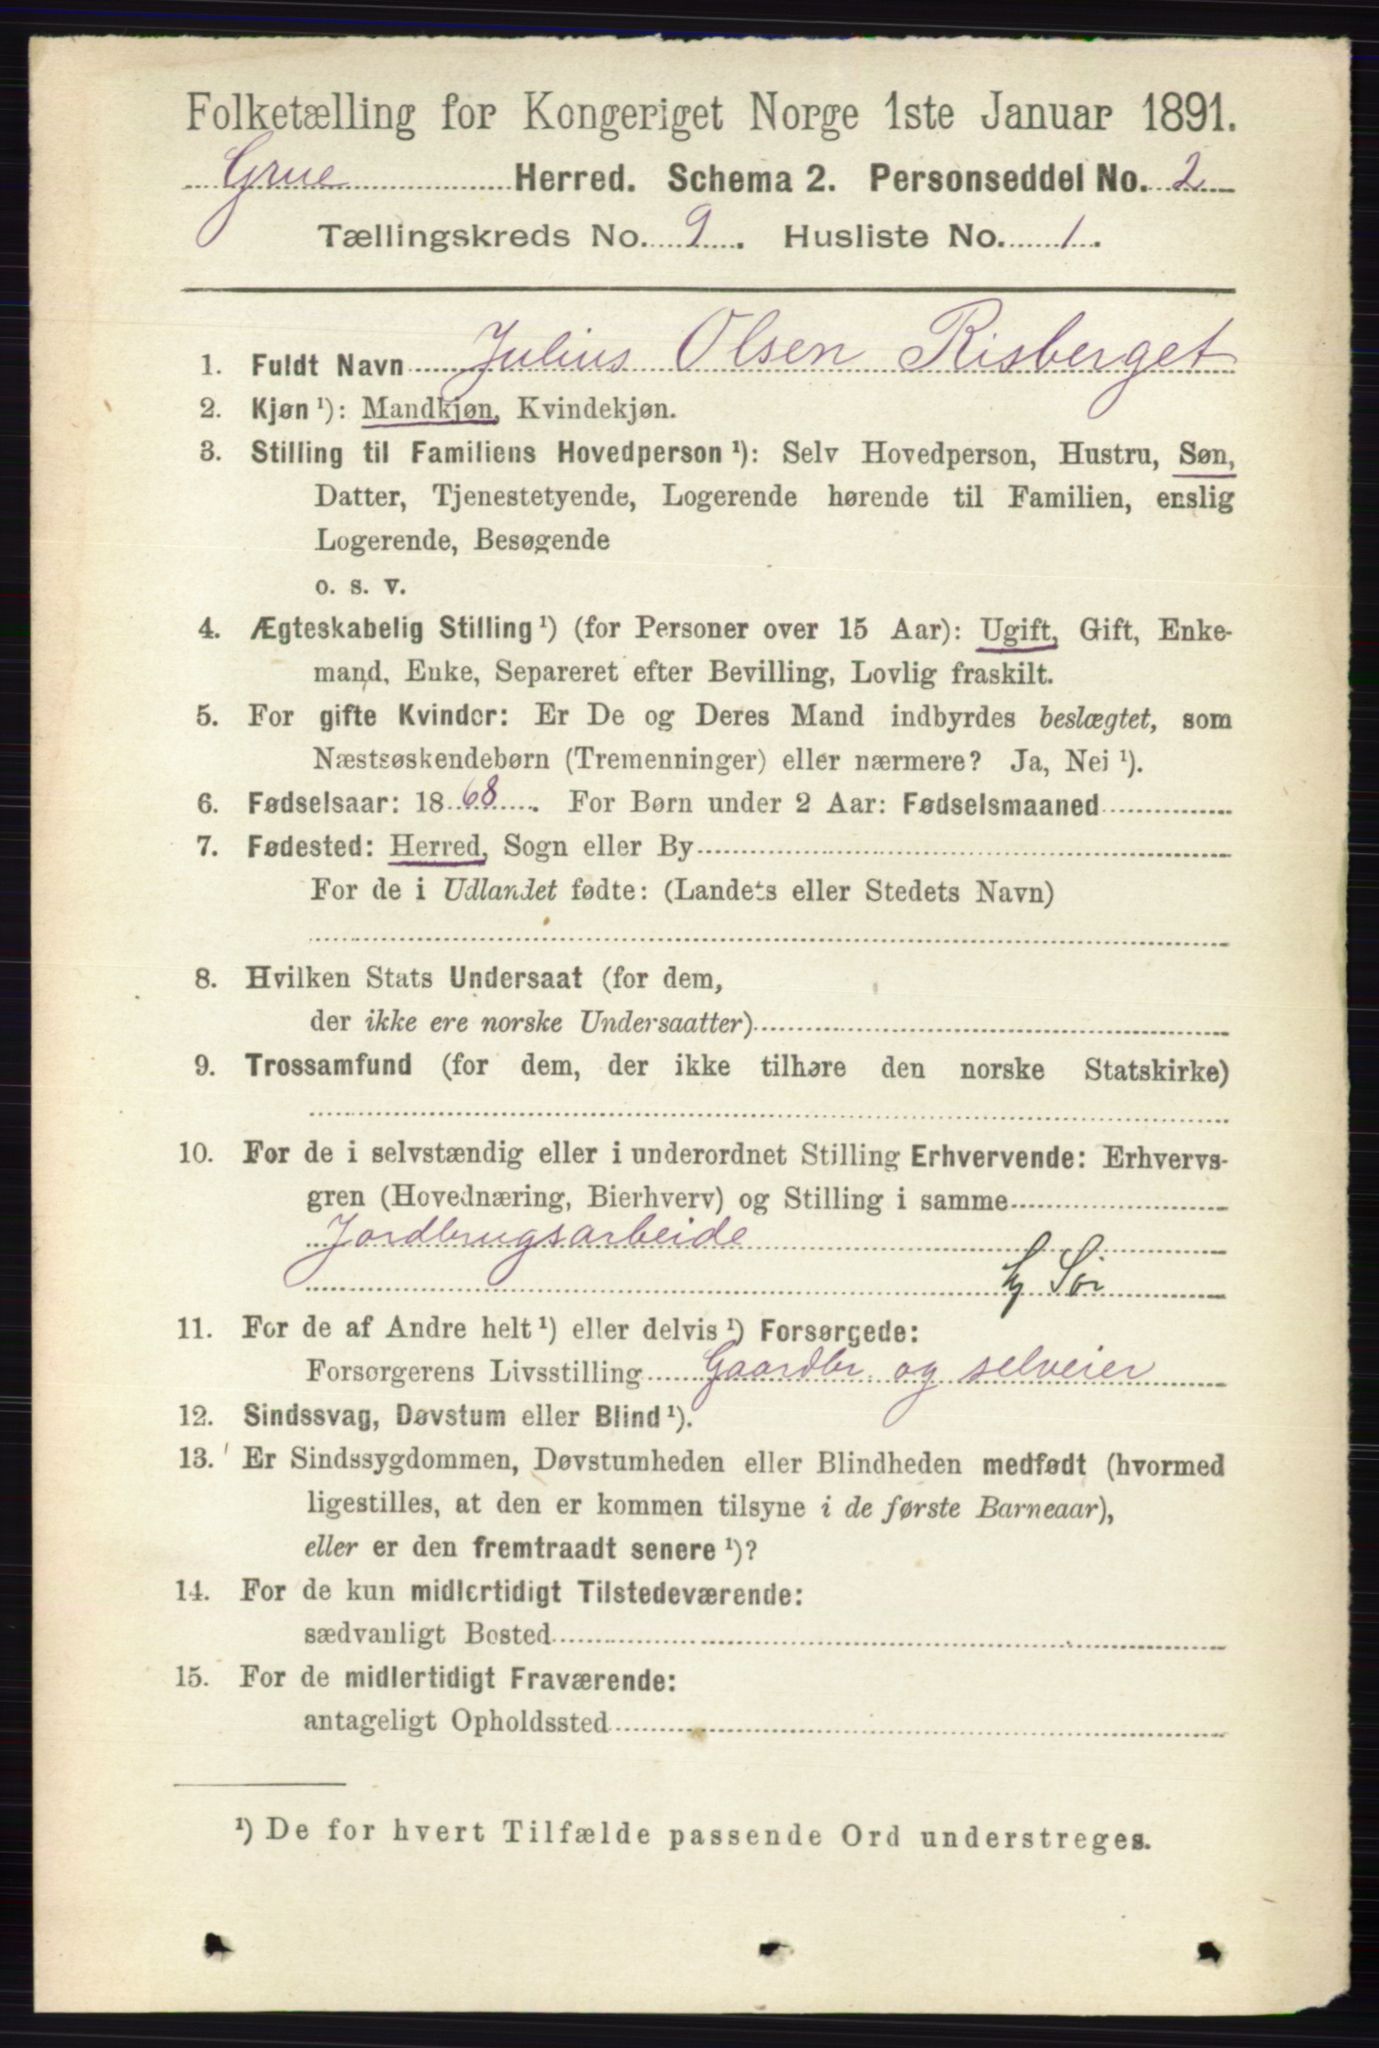 Folketælling for Kongeriget Norge 1ste Januar 1891.
Grue Herred. Schema 2. Personseddel No. 2
Tællingskreds No. 9. Husliste No. 1.
1. Fuldt Navn Julius Olsen Risberget
2. Kjøn ¹): Mandkjøn, Kvindekjøn.
3. Stilling til Familiens Hovedperson ¹): Selv Hovedperson, Hustru, Søn,
Datter, Tjenestetyende, Logerende hørende til Familien, enslig
Logerende, Besøgende
o. s. v.
4. Ægteskabelig Stilling ¹) (for Personer over 15 Aar): Ugift, Gift, Enke-
mand, Enke, Separeret efter Bevilling, Lovlig fraskilt.
5. For gifte Kvinder: Er De og Deres Mand indbyrdes beslægtet, som
Næstsøskendebørn (Tremenninger) eller nærmere? Ja, Nei ¹).
6. Fødselsaar: 1868. For Børn under 2 Aar: Fødselsmaaned
7. Fødested: Herred, Sogn eller By
For de i Udlandet fødte: (Landets eller Stedets Navn)
8. Hvilken Stats Undersaat (for dem,
der ikke ere norske Undersaatter)
9. Trossamfund (for dem, der ikke tilhøre den norske Statskirke)
10. For de i selvstændig eller i underordnet Stilling Erhvervende: Erhvervs-
gren (Hovednæring, Bierhverv) og Stilling i samme
Jordbrugsarbeide
11. For de af Andre helt ¹) eller delvis ¹) Forsørgede:
Forsørgerens Livsstilling Gaardbr. og selveier
12. Sindssvag, Døvstum eller Blind ¹).
13. Er Sindssygdommen, Døvstumheden eller Blindheden medfødt (hvormed
ligestilles, at den er kommen tilsyne i de første Barneaar),
eller er den fremtraadt senere ¹)?
14. For de kun midlertidigt Tilstedeværende:
sædvanligt Bosted
15. For de midlertidigt Fraværende:
antageligt Opholdssted
¹) De for hvert Tilfælde passende Ord understreges.